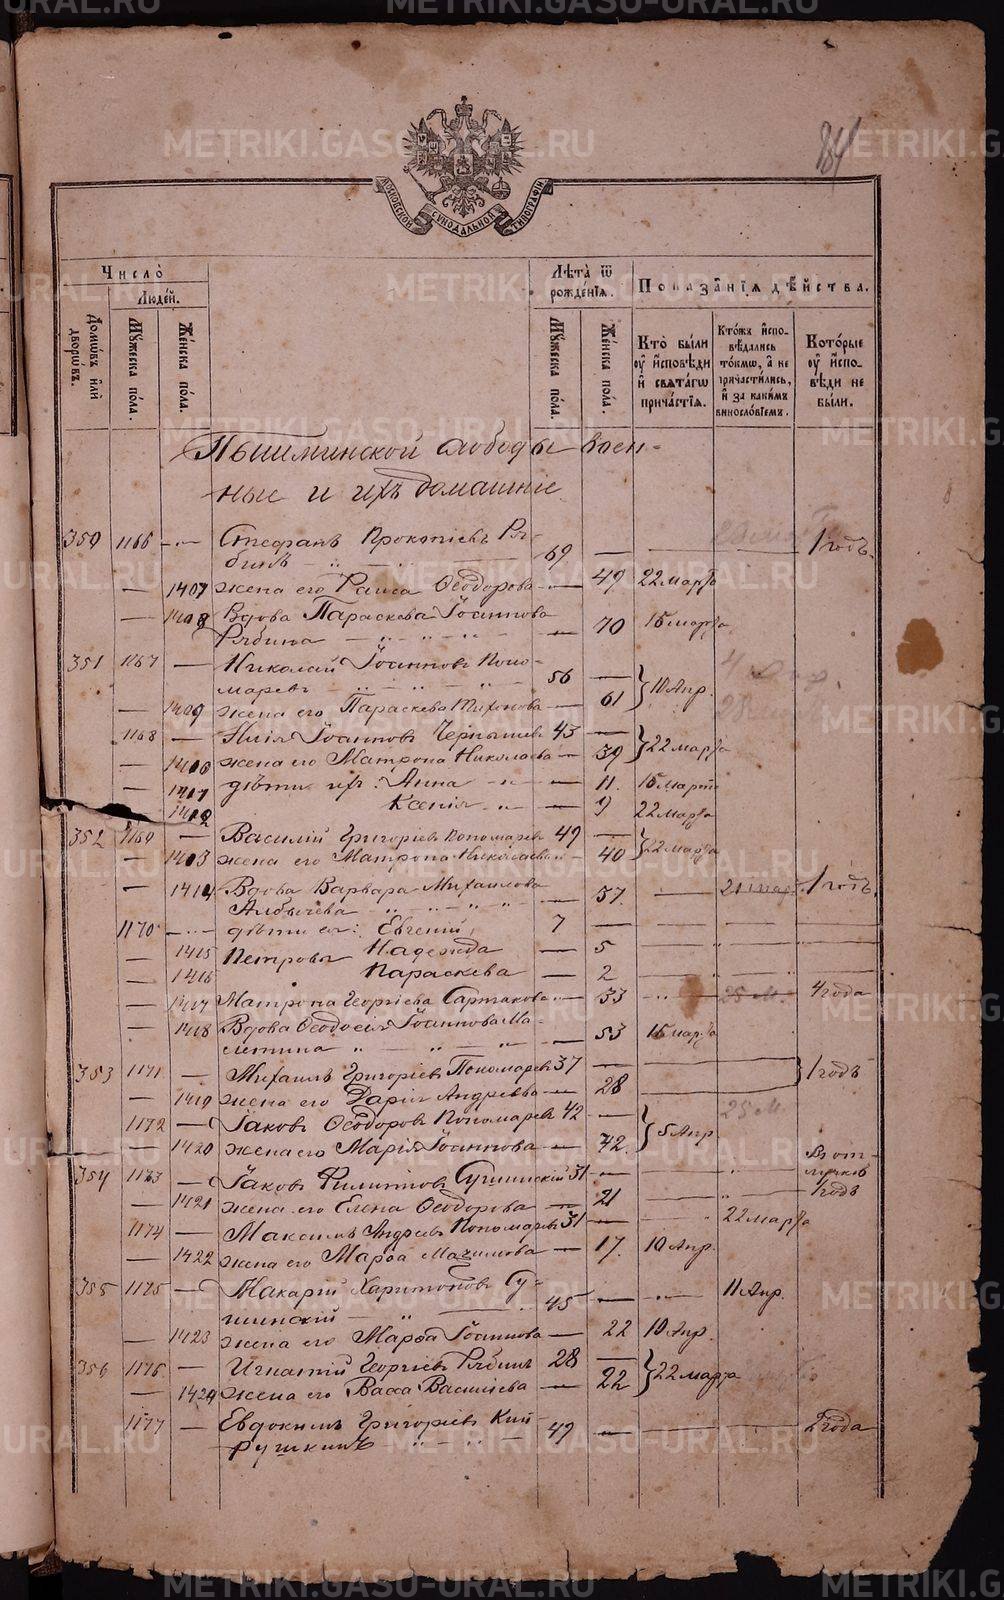 METRIKI.GASO-URAL.RU
МОСКОВСКОЙ СѴНОДАЛЬНОЙ ТИПОГРАФІИ
Число̀
Людей.
Домѡвъ или дворѡвъ.
Мꙋжеска по́ла.
Же́нска по́ла.
Лѣта̀ ѿ рожде́нїѧ.
Мꙋжеска по́ла.
Же́нска по́ла.
Показа̑нїѧ дѣ́йства.
Кто̀ бы́ли оу҆ и҆сповѣди и҆ свѧта́гѡ прича́стїѧ.
Кто́жъ и҆сповѣ́дались то́кмѡ, а҆ не причасти́лись, и҆ за каки́мъ винословїемъ.
Кото́рые оу҆ и҆сповѣди не бы́ли.
Пышминской слободы воен-
ные и ихъ домашніе
350 1166 — Стефанъ Прокопіевъ Ря-
бинъ 69 — — 1 годъ.
— 1407 жена его Раиса Ѳеодорова — 49 22 марта
— 1408 Вдова Параскева Іоаннова
Рябина — 70 15 марта
351 1167 — Николай Іоанновъ Поно-
маревъ 56 — } 10 Апр.
— 1409 жена его Параскева Тихонова — 61
1168 — Илія Іоанновъ Чернышев 43 — } 22 марта
— жена его Матрона Николаева — 39
— дѣти ихъ: Анна — 11. 15 марта
Ксенія — 9 22 марта
352 1169 — Василій Григоріев Пономарев 49 — } 22 марта
— 1413 жена его Матрона Николаева — 40
— 1414 Вдова Варвара Михаилова — 57. — 1 годъ
1170 — дѣти ея: Евгеній 7 — — — —
— 1415 Петровы Надежда — 5 — — —
— 1416 Параскева — 2 — — —
— 1417 Матрона Георгіева Сартакова — 33 — 25 М. 4 года
— 1418 Вдова Ѳеодосія Іоаннова Ма-
— 53 15 марта
353 1171 — Михаилъ Григоріев Пономарев 37 — — — } 1 годъ
— 1419 жена его Дарія Андреева — 28 — —
1172 — Іаковъ Ѳеодоров Пономарев 42 — } 5 Апр 25 М.
— 1420 жена его Марія Іоаннова — 42.
354 1173 — Іаковъ Филиппов Сушинскій 31 — — — В от-
лучкѣ
— 1421 жена его Елена Ѳеодорова — 21 — — 1 годъ
1174 — Максимъ Андреев Пономарев 31 — — 22 марта
— 1422 жена его Марѳа — 17. 10 Апр.
355 1175 — Макарій Харитонов Су-
шинскій 45 — — 11 Апр.
— 1423 жена его Марѳа Іоаннова — 22 10 Апр.
356 1176 — Игнатій Георгіев Рябинъ 28 — } 22 марта
— 1424 жена его Васса Васильева — 22
1177 — Евдокимъ Григоріев Кии-
рушкинъ 49 — — — 2 года